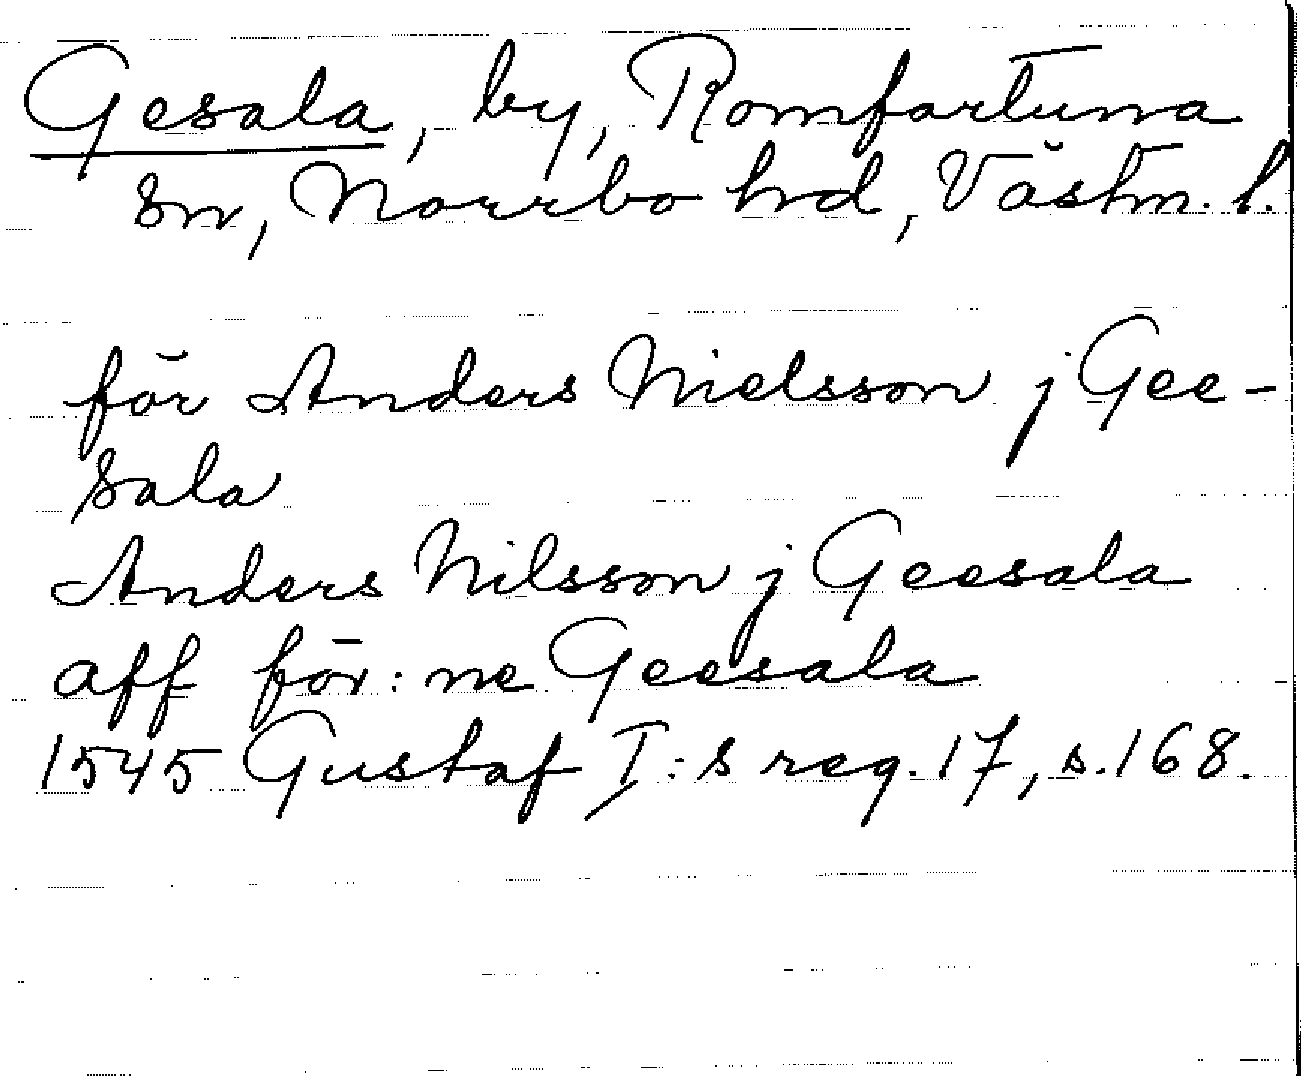 Gesala, by, Romfartuna
sn, Norrbo hd, Västm. l.
för Anders Nielsson j Gee-
sala
Anders Nilsson j Geesala
aff för:ne Geesala
1545 Gustaf I:s reg. 17, s. 168.